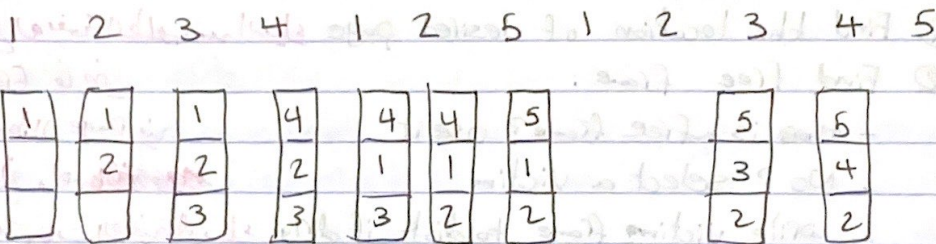 1 2 3 4 1 2 5 1 2 3 4 5
1 1 1 4 4 4 5 5 5
2 2 2 1 1 1 3 4
3 3 3 2 2 2 2